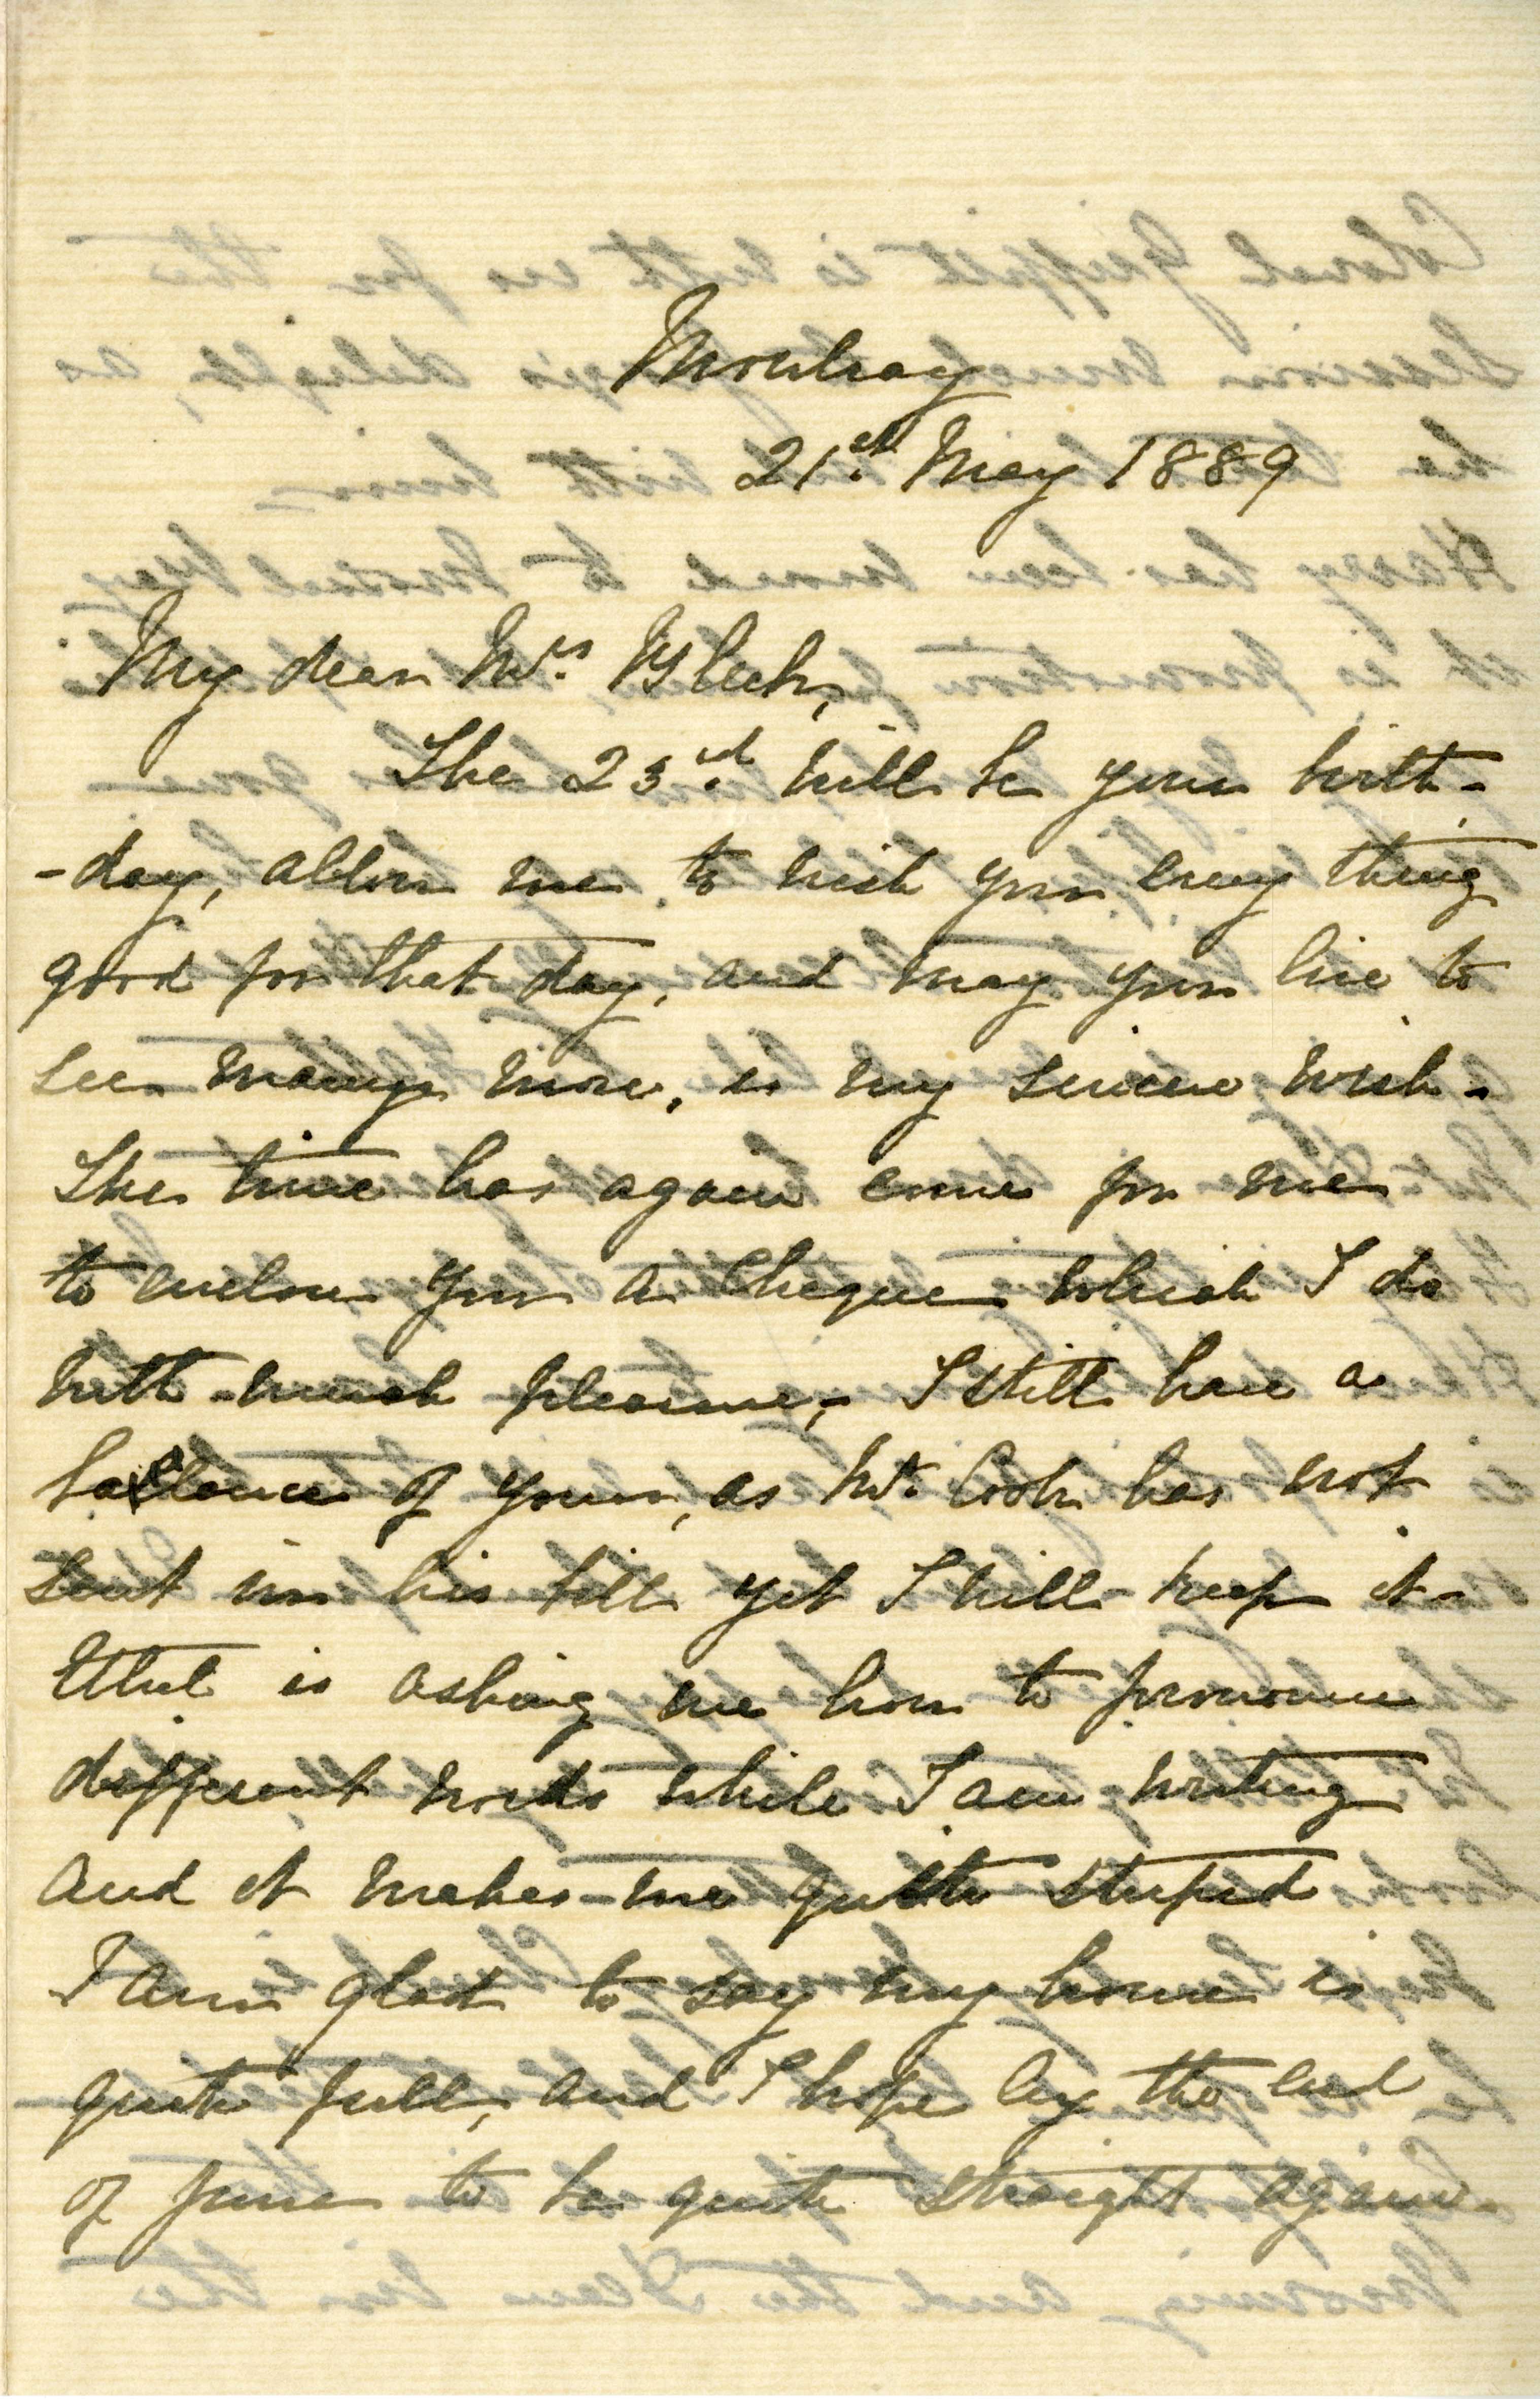 Moulray
21st. May 1889
My dear Mrs. Bleek,
The 23rd. will be your birth-
-day, allow me to wish you every thing
good for that day, and may you live to
see many more, is my sincere wish -
The time has again come for me
to enclose you a Cheque which I do
with much pleasure, - I still have a
ballance of yours, as Mr. Cook has not
sent in his bill yet I will keep it -
Ethel is asking me how to pronounce
different words while I am writing
and it makes me quite stupid
I am glad to say my house is
quite full, and I hope by the end
of June to be quite straight again -